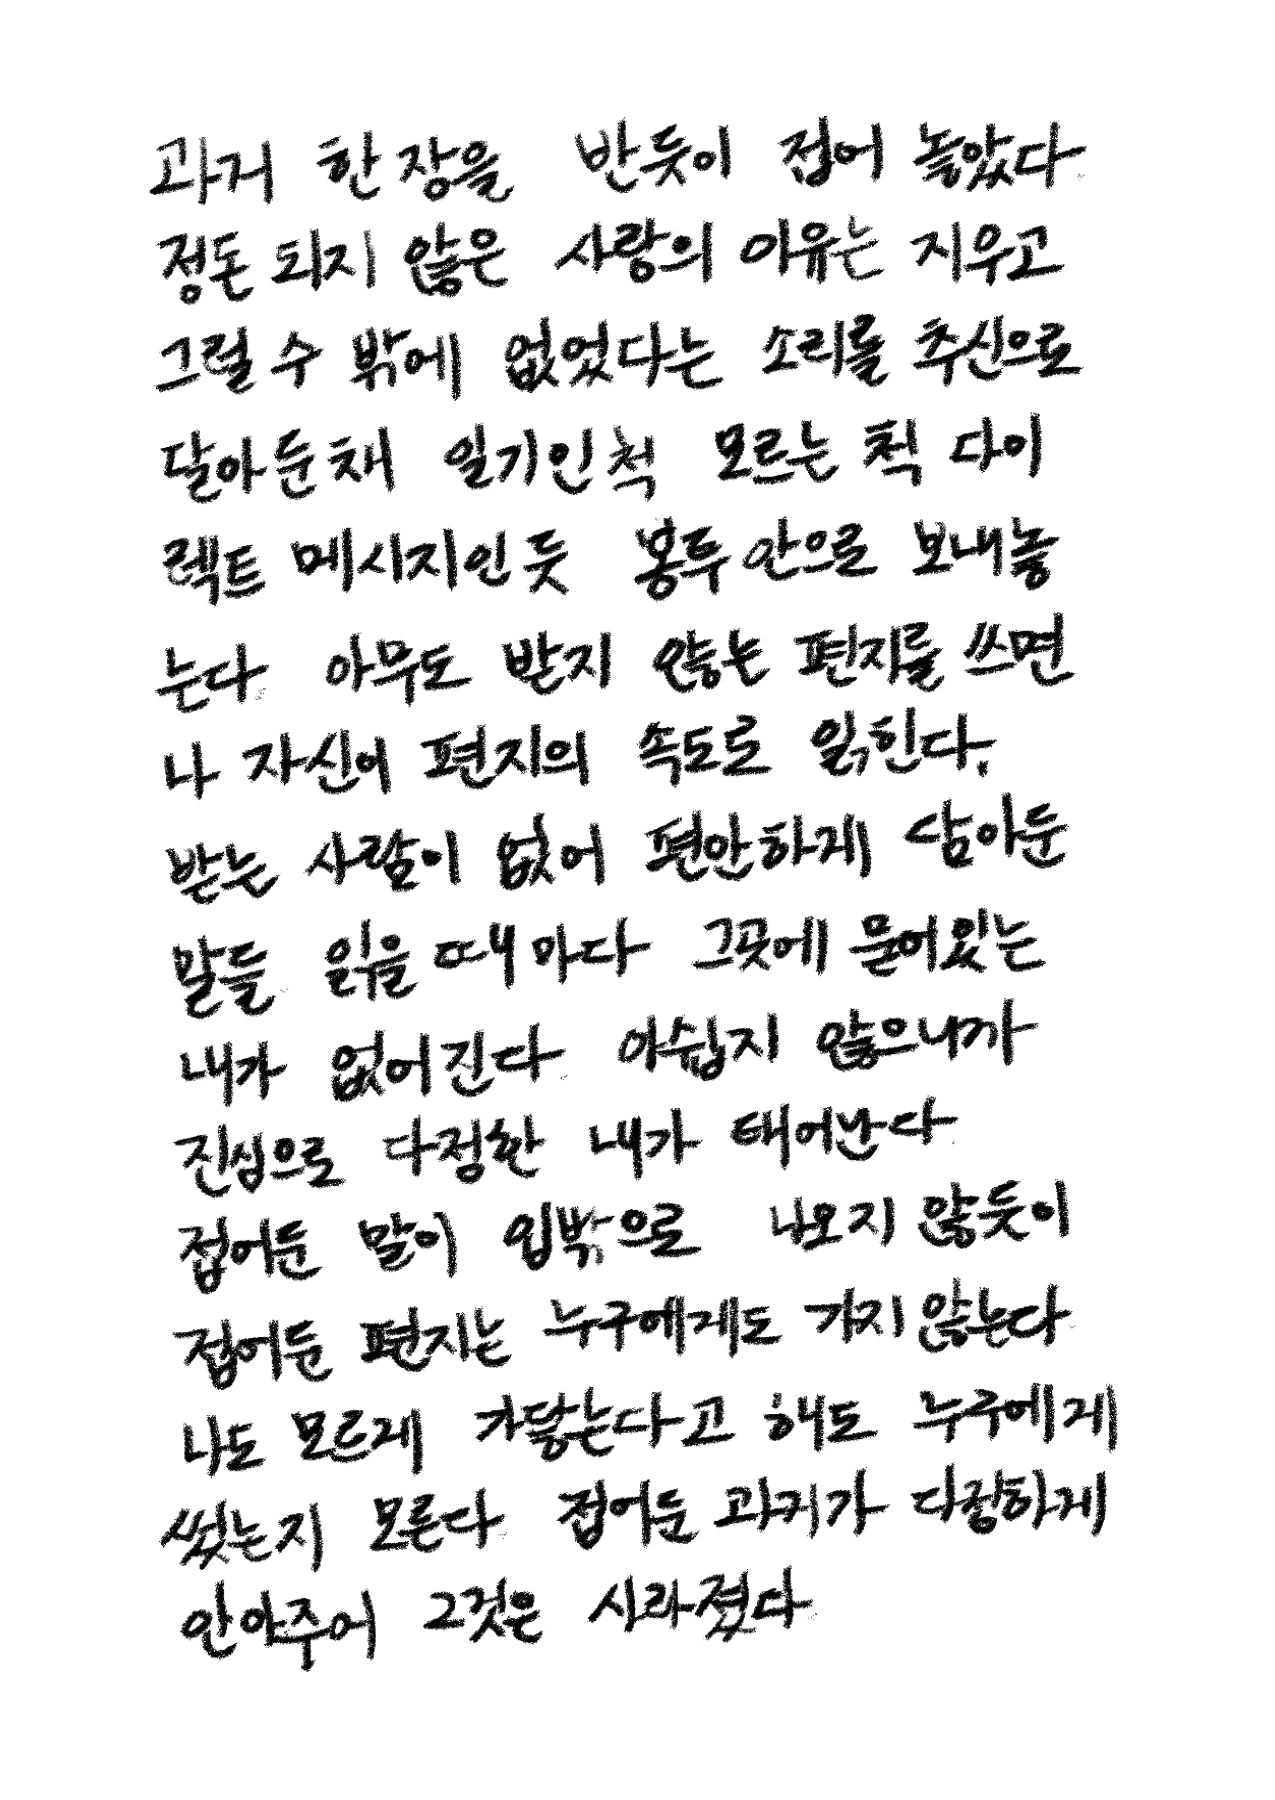 과거 한 장을 반듯이 접어 놓았다
정돈 되지 않은 사랑의 이유는 지우고
그럴 수 밖에 없었다는 소리를 추신으로
달아 둔 채 일기인 척 모르는 척 다이
렉트 메시지인 듯 봉투 안으로 보내놓
는다 아무도 받지 않는 편지를 쓰면
나 자신이 편지의 속도로 읽힌다.
받는 사람이 없어 편안하게 담아둔
말들 읽을 때 마다 그곳에 묻어있는
내가 없어진다 아쉽지 않으니까
진심으로 다정한 내가 태어난다
접어둔 말이 입밖으로 나오지 않듯이
접어둔 편지는 누구에게도 가지 않는다
나도 모르게 가닿는다고 해도 누구에게
썼는지 모른다 접어둔 과거가 다정하게
안아주어 그것은 사라졌다